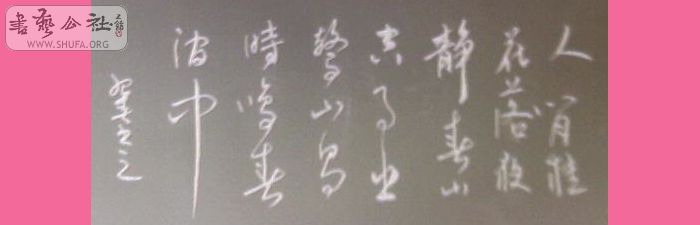 書藝公社
WWW.SHUFA.ORG
人閒桂
花落夜
静春山
空月出
驚山鸟
時鳴春
涧中